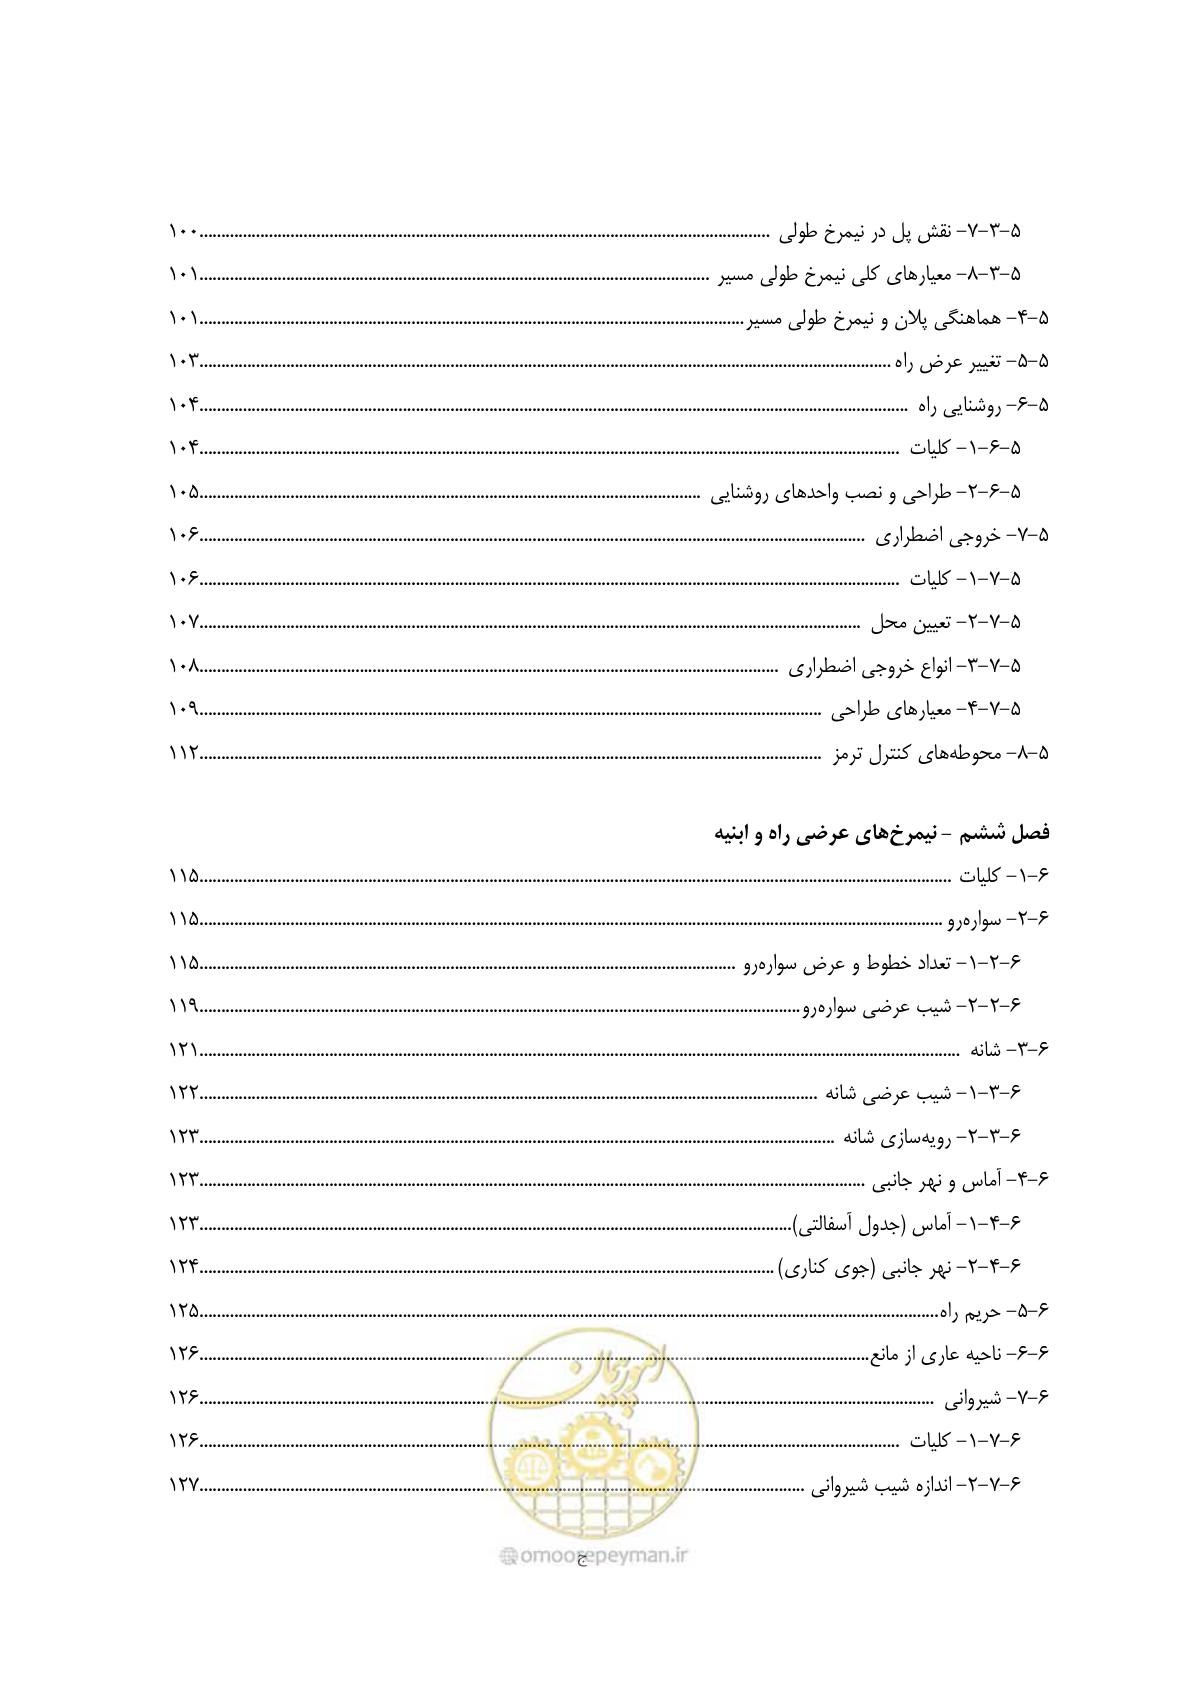 ۵-۳-۷- نقش پل در نیمرخ طولی ........ ۱۰۰
۵-۳-۸- معیارهای کلی نیمرخ طولی مسیر ........ ۱۰۱
۵-۴- هماهنگی پلان و نیمرخ طولی مسیر ........ ۱۰۱
۵-۵- تغییر عرض راه ........ ۱۰۳
۵-۶- روشنایی راه ........ ۱۰۴
۵-۶-۱- کلیات ........ ۱۰۴
۵-۶-۲- طراحی و نصب واحدهای روشنایی ........ ۱۰۵
۵-۷- خروجی اضطراری ........ ۱۰۶
۵-۷-۱- کلیات ........ ۱۰۶
۵-۷-۲- تعیین محل ........ ۱۰۷
۵-۷-۳- انواع خروجی اضطراری ........ ۱۰۸
۵-۷-۴- معیارهای طراحی ........ ۱۰۹
۵-۸- محوطه‌های کنترل ترمز ........ ۱۱۲
فصل ششم - نیمرخ‌های عرضی راه و ابنیه
۶-۱- کلیات ........ ۱۱۵
۶-۲- سواره‌رو ........ ۱۱۵
۶-۲-۱- تعداد خطوط و عرض سواره‌رو ........ ۱۱۵
۶-۲-۲- شیب عرضی سواره‌رو ........ ۱۱۹
۶-۳- شانه ........ ۱۲۱
۶-۳-۱- شیب عرضی شانه ........ ۱۲۲
۶-۳-۲- رویه‌سازی شانه ........ ۱۲۳
۶-۴- آماس و نهر جانبی ........ ۱۲۳
۶-۴-۱- آماس (جدول آسفالتی) ........ ۱۲۳
۶-۴-۲- نهر جانبی (جوی کناری) ........ ۱۲۴
۶-۵- حریم راه ........ ۱۲۵
۶-۶- ناحیه عاری از مانع ........ ۱۲۶
۶-۷- شیروانی ........ ۱۲۶
۶-۷-۱- کلیات ........ ۱۲۶
۶-۷-۲- اندازه شیب شیروانی ........ ۱۲۷
امور پیمان
omoorepeyman.ir
ج